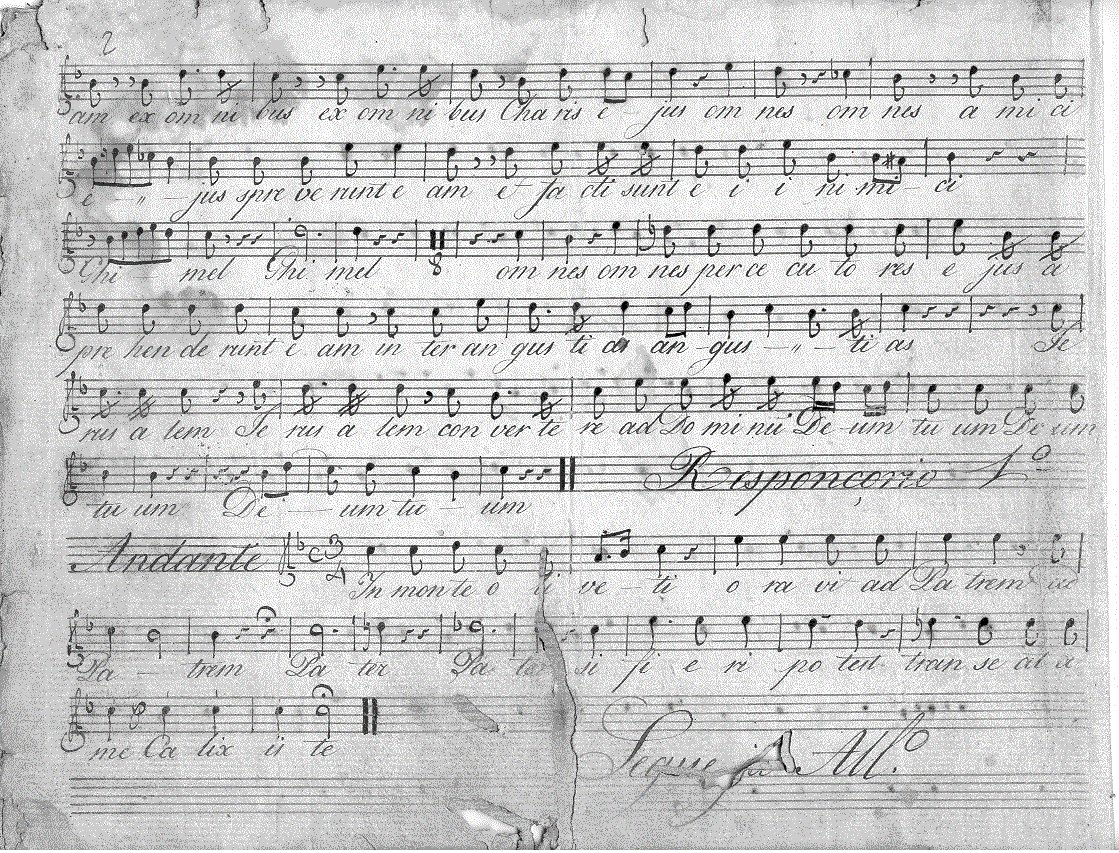 2
am ex om ni bus ex om ni bus Cha ris e - jus om nes om nes a mi ci
e - " - jus spre ve runt e am et fa cti sunt e i i ni mi - ci
Ghi mel Ghi mel 8 om nes om nes per ce cu to res e jus a
pre hen de runt e am in ter an gus ti as an - gus - " - ti as Je
rus a lem Je rus a lem con ver te re ad Do mi nũ De - um tu um De um
tu um De - um tu - um Responçorio 1º
Andante C 3 4 In mon te o li ve - ti o ra vi ad Pa trem ad
Pa - trem Pa ter Pa ter si fi e ri po test tran se at a
me Ca lix is te
Segue All.º